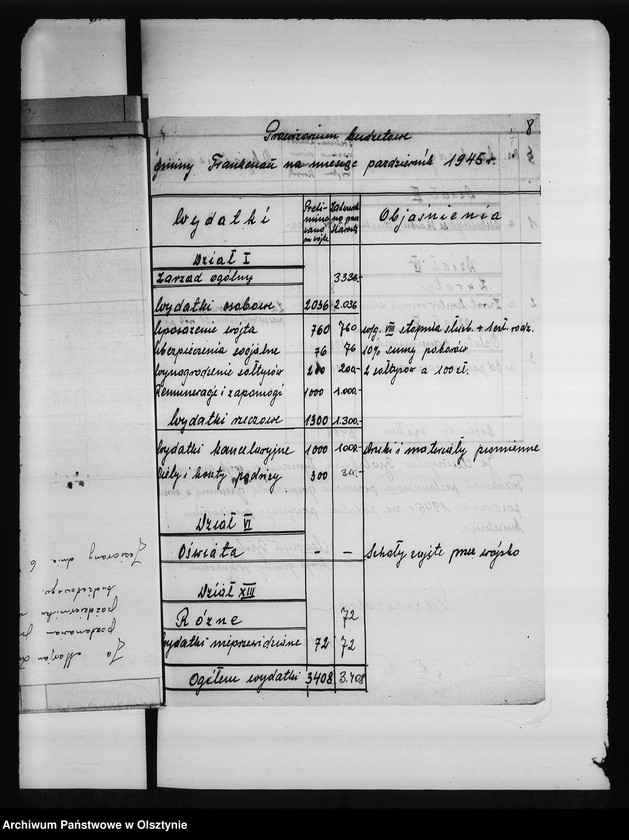 8
Prowizorium budżetowe
gminy Frankenau na miesiąc październik 1945 r.
Wydatki Preliminowano w wójt Objaśnienia
Dział I
Zarząd ogólny 3336.-
Wydatki osobowe 2036 2.036
Uposażenie wójta 760 760 wdg. VIII stopnia służb. + 1 czł. rodz.
Ubezpieczenia socjalne 76 76 10% sumy poborów
Wynagrodzenie sołtysów 200 200.- 2 sołtysów a 100 zł.
Remuneracje i zapomogi 1000 1.000.-
Wydatki rzeczowe 1300 1.300.-
Wydatki kancelaryjne 1000 1000.- druki i materiały piśmienne
Diety i koszty podróży 300 300.-
Dział VI
Oświata - - Szkoły zajęte przez wojsko
Dział XIII
Różne 72
Wydatki nieprzewidziane 72 72
Ogółem wydatki 3408 3.408
Ja Marjan
października
budżetowego
dnia 6
Archiwum Państwowe w Olsztynie